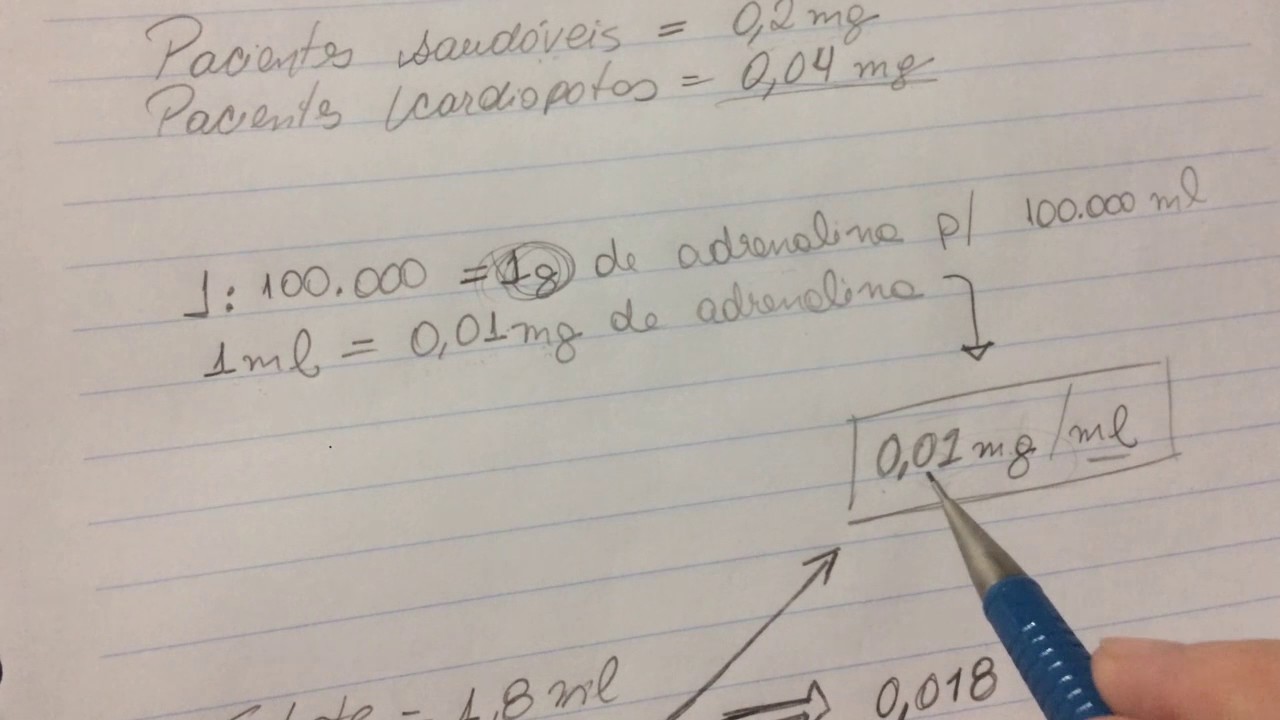 Pacientes saudáveis = 0,2 mg
Pacients cardiopatas = 0,04 mg
1: 100.000 = 1g de adrenalina p/ 100.000 ml
1 ml = 0,01 mg de adrenalina
0,01 mg/ml
= 1,8 ml
0,018